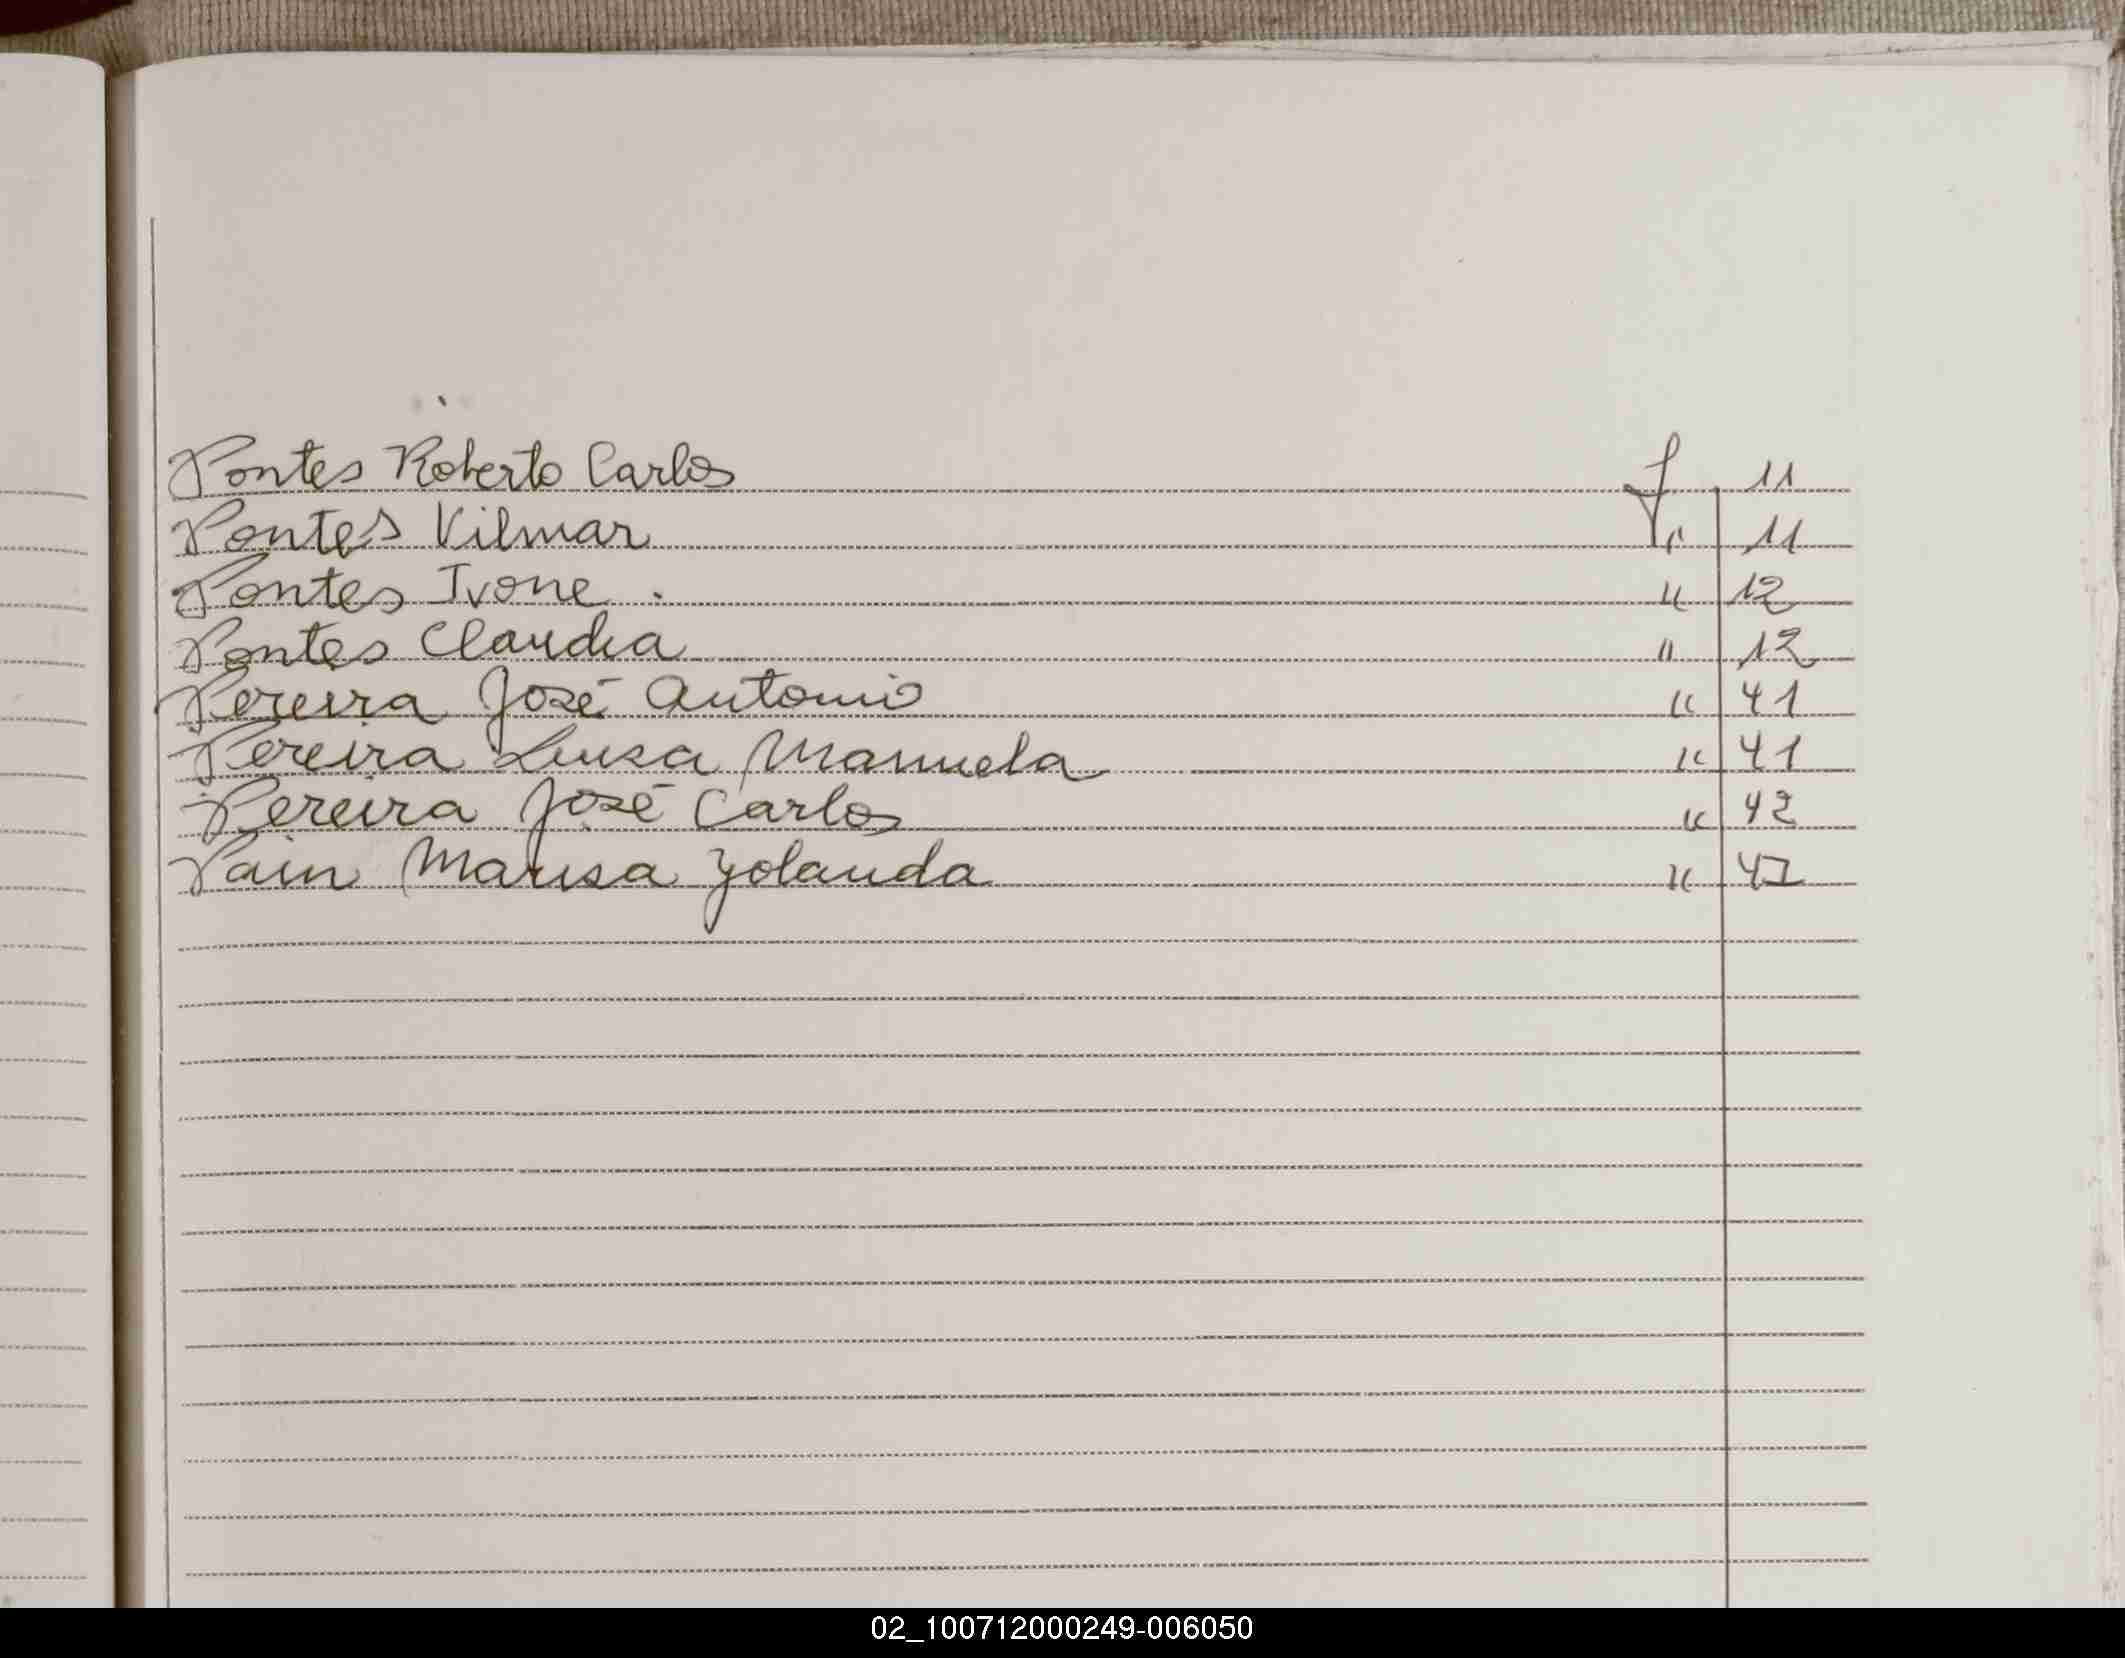 Pontes Roberto Carlos f 11
Pontes Vilmar " 11
Pontes Ivone . " 12
Pontes Claudia " 12
Pereira José Antonio " 41
Pereira Luisa Manuela " 41
Pereira José Carlos " 42
Pain Marisa Yolanda "
02_100712000249-006050